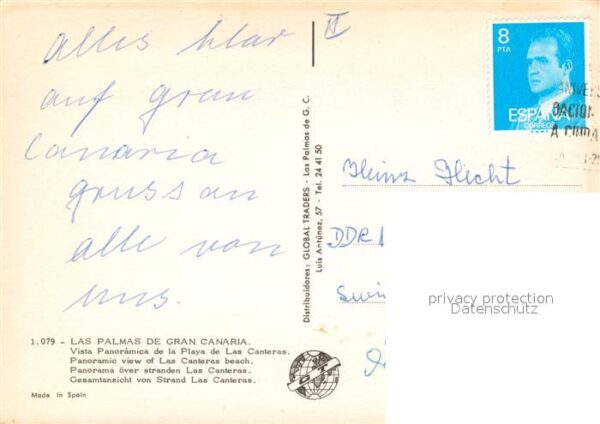 Alles klar
auf gran
Canaria
gruss an
alle von
uns.
1.079 - LAS PALMAS DE GRAN CANARIA.
Vista Panorámica de la Playa de Las Canteras.
Panoramic view of Las Canteras beach.
Panorama över stranden Las Canteras.
Gesamtansicht von Strand Las Canteras.
Made in Spain
Distribuidores: GLOBAL TRADERS - Las Palmas de G. C.
Luis Antúnez, 57 - Tel. 24 41 50
II
8
PTA
ESPAÑA
CORREOS
ANIVERS
DACION
A CIUDA
Heinz Hecht
DDR
privacy protection
Datenschutz